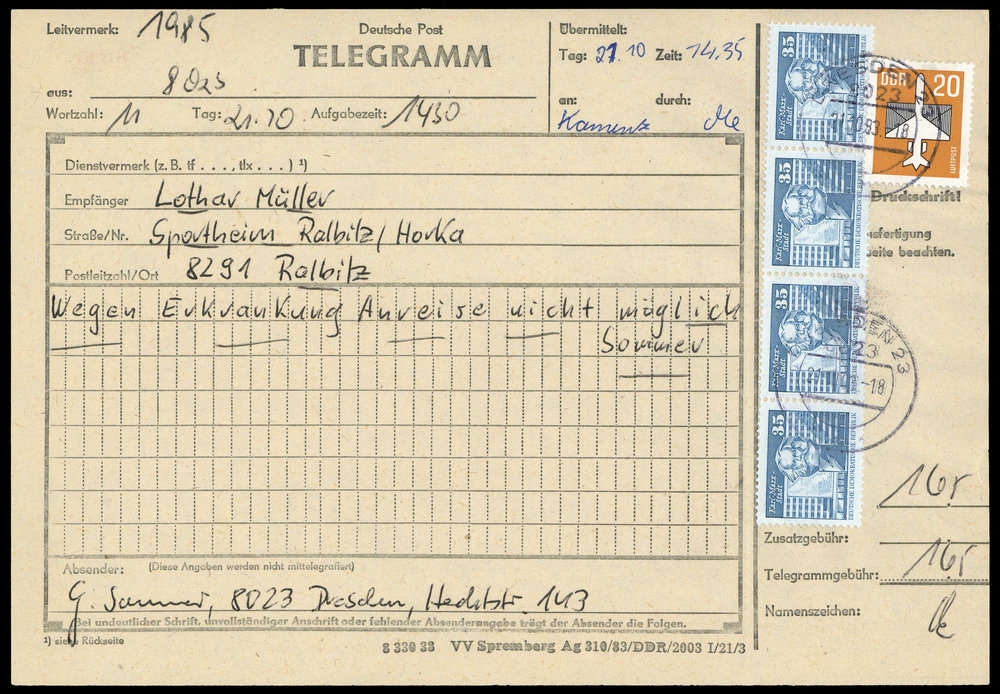 Leitvermerk: 1985
Deutsche Post
TELEGRAMM
aus: 8023
Wortzahl: 11 Tag: 21.10 Aufgabezeit: 1430
Übermittelt:
Tag: 21.10 Zeit: 14.35
an: durch:
Kamenz
Dienstvermerk (z. B. tf . . . ., tlx . . . ) ¹)
Empfänger Lothar Müller
Straße/Nr. Sportheim Ralbitz/Horka
Postleitzahl/Ort 8291 Ralbitz
Wegen Erkrankung Anreise nicht möglich
Sommer
Absender: (Diese Angaben werden nicht mittelegrafiert)
G. Sommer, 8023 Dresden, Hechtstr. 143
Bei undeutlicher Schrift, unvollständiger Anschrift oder fehlender Absenderangabe trägt der Absender die Folgen.
¹) siehe Rückseite
8 330 38 VV Spremberg Ag 310/83/DDR/2003 I/21/3
35
Karl-Marx-Stadt
DEUTSCHE DEMOKRATISCHE REPUBLIK
35
Karl-Marx-Stadt
DEUTSCHE DEMOKRATISCHE REPUBLIK
35
Karl-Marx-Stadt
35
Karl-Marx-Stadt
DEUTSCHE DEMOKRATISCHE REPUBLIK
DDR 20
LUFTPOST
DRESDEN 23
8023
21.10.83.-18
23
-18
Druckschrift!
usfertigung
eite beachten.
Zusatzgebühr:
Telegrammgebühr:
Namenszeichen: